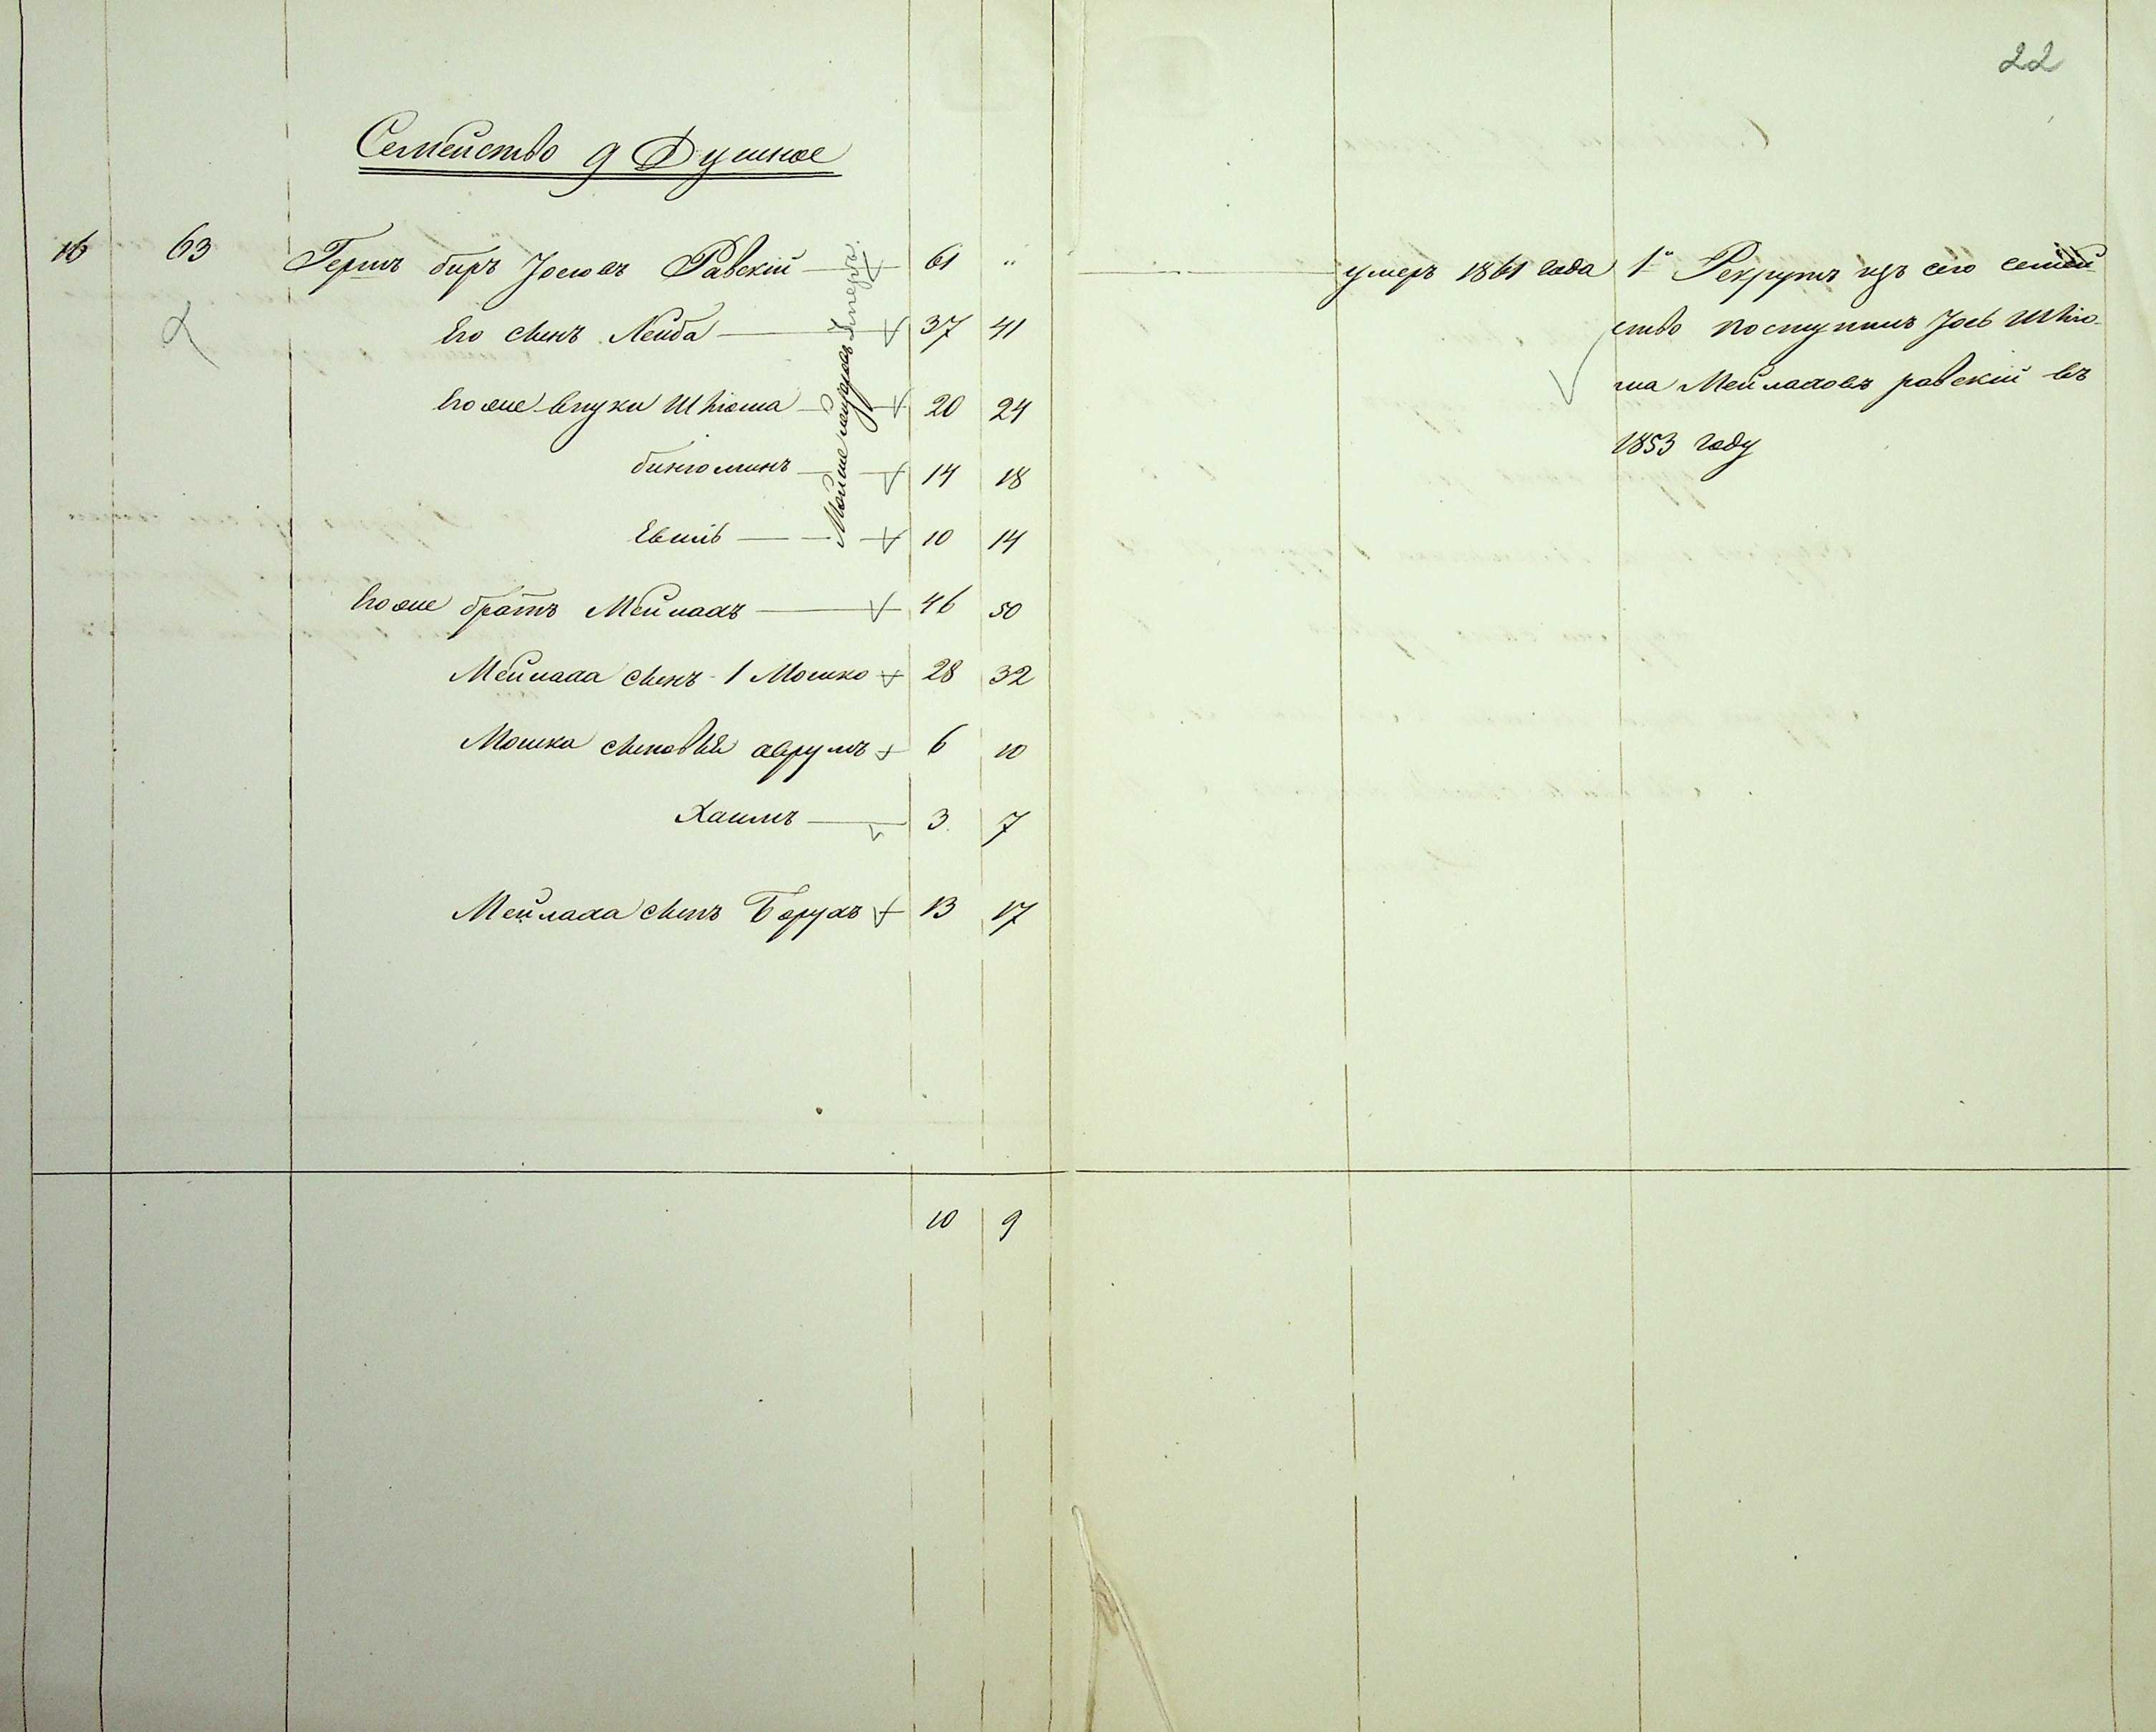 22
Семейство 9 Душное
16 63 Гершъ биръ Іосіовъ Равскій 61 " умеръ 1861 года 1й Рекрутъ изъ сего семей
Его сынъ Лейба 37 41 ство поступилъ Іось Шлio-
Его же внуки Шлiома 20 24 ма Мейлаховъ равскій въ
бинюминъ 14 18 1853 году
Евшiь 10 14
Его же братъ Мейлахъ 46 50
Мейлаха сынъ 1 Мошко 28 32
Мошка сыновья аврумъ 6 10
Хаимъ 3 7
Мейлаха сынъ Борухъ 13 17
умеръ.
10 9